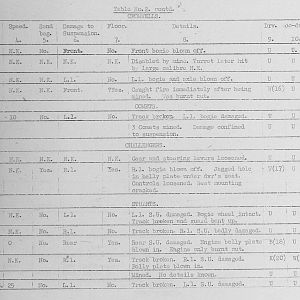 Table No.2. contd.
CROMWELLS.
Speed. Sand bag. Damage to Suspension. Floor. Details. Drv.
4. 5. 6. 7. 8. 9. 10.
N.K. No. Front. No. Front bogie blown off. U U
N.K. No. N.K. No. Disabled by mine. Turret later hit by large calibre H.E. U U
N.K. No. L.l. No. L.l. bogie and axle blown off. U U
N.K. N.K. Front. Yes. Caught fire immediately after being mined. Was burnt out. W(16) U
COMETS.
10 No. L.l. No. Track broken. L.l. bogie damaged. U U
3 Comets mined. Damage confined to suspension. U U
CHALLENGERS.
N.K. N.K. N.K. N.K. Gear and steering levers loosened. U U
N.K. Yes. R.l. Yes. R.l. bogie blown off. Jagged hole in belly plate under dvr's seat. Controls loosened. Seat mounting cracked. W(17) U
STUARTS.
N.K. No. L.l. No. L.l. S.U. damaged. Bogie wheel intact. Track broken and guard bent up. U U
N.K. No. R.l. No. Track broken. R.l. S.U. badly damaged. U U
0 No. Rear Yes. Rear S.U. damaged. Engine belly plate blown in. Engine only burnt out. W(18) U
N.K. No. R.l. Yes. Track broken. R.l. S.U. damaged. Belly plate blown in. K(20)
Mined. No details known. U U
25 No. L.l. No. Track broken. L.l. S.U. damaged. U U